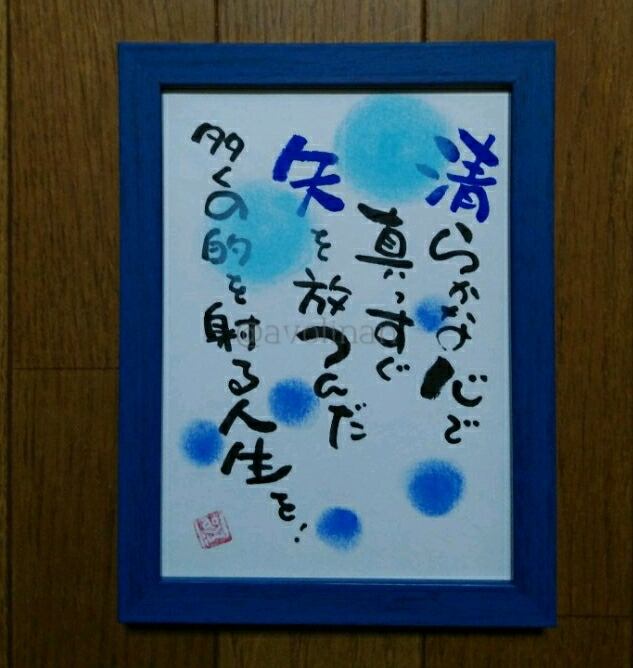 清らかな心で
真っすぐ
矢を放つんだ
多くの的を射る人生を!